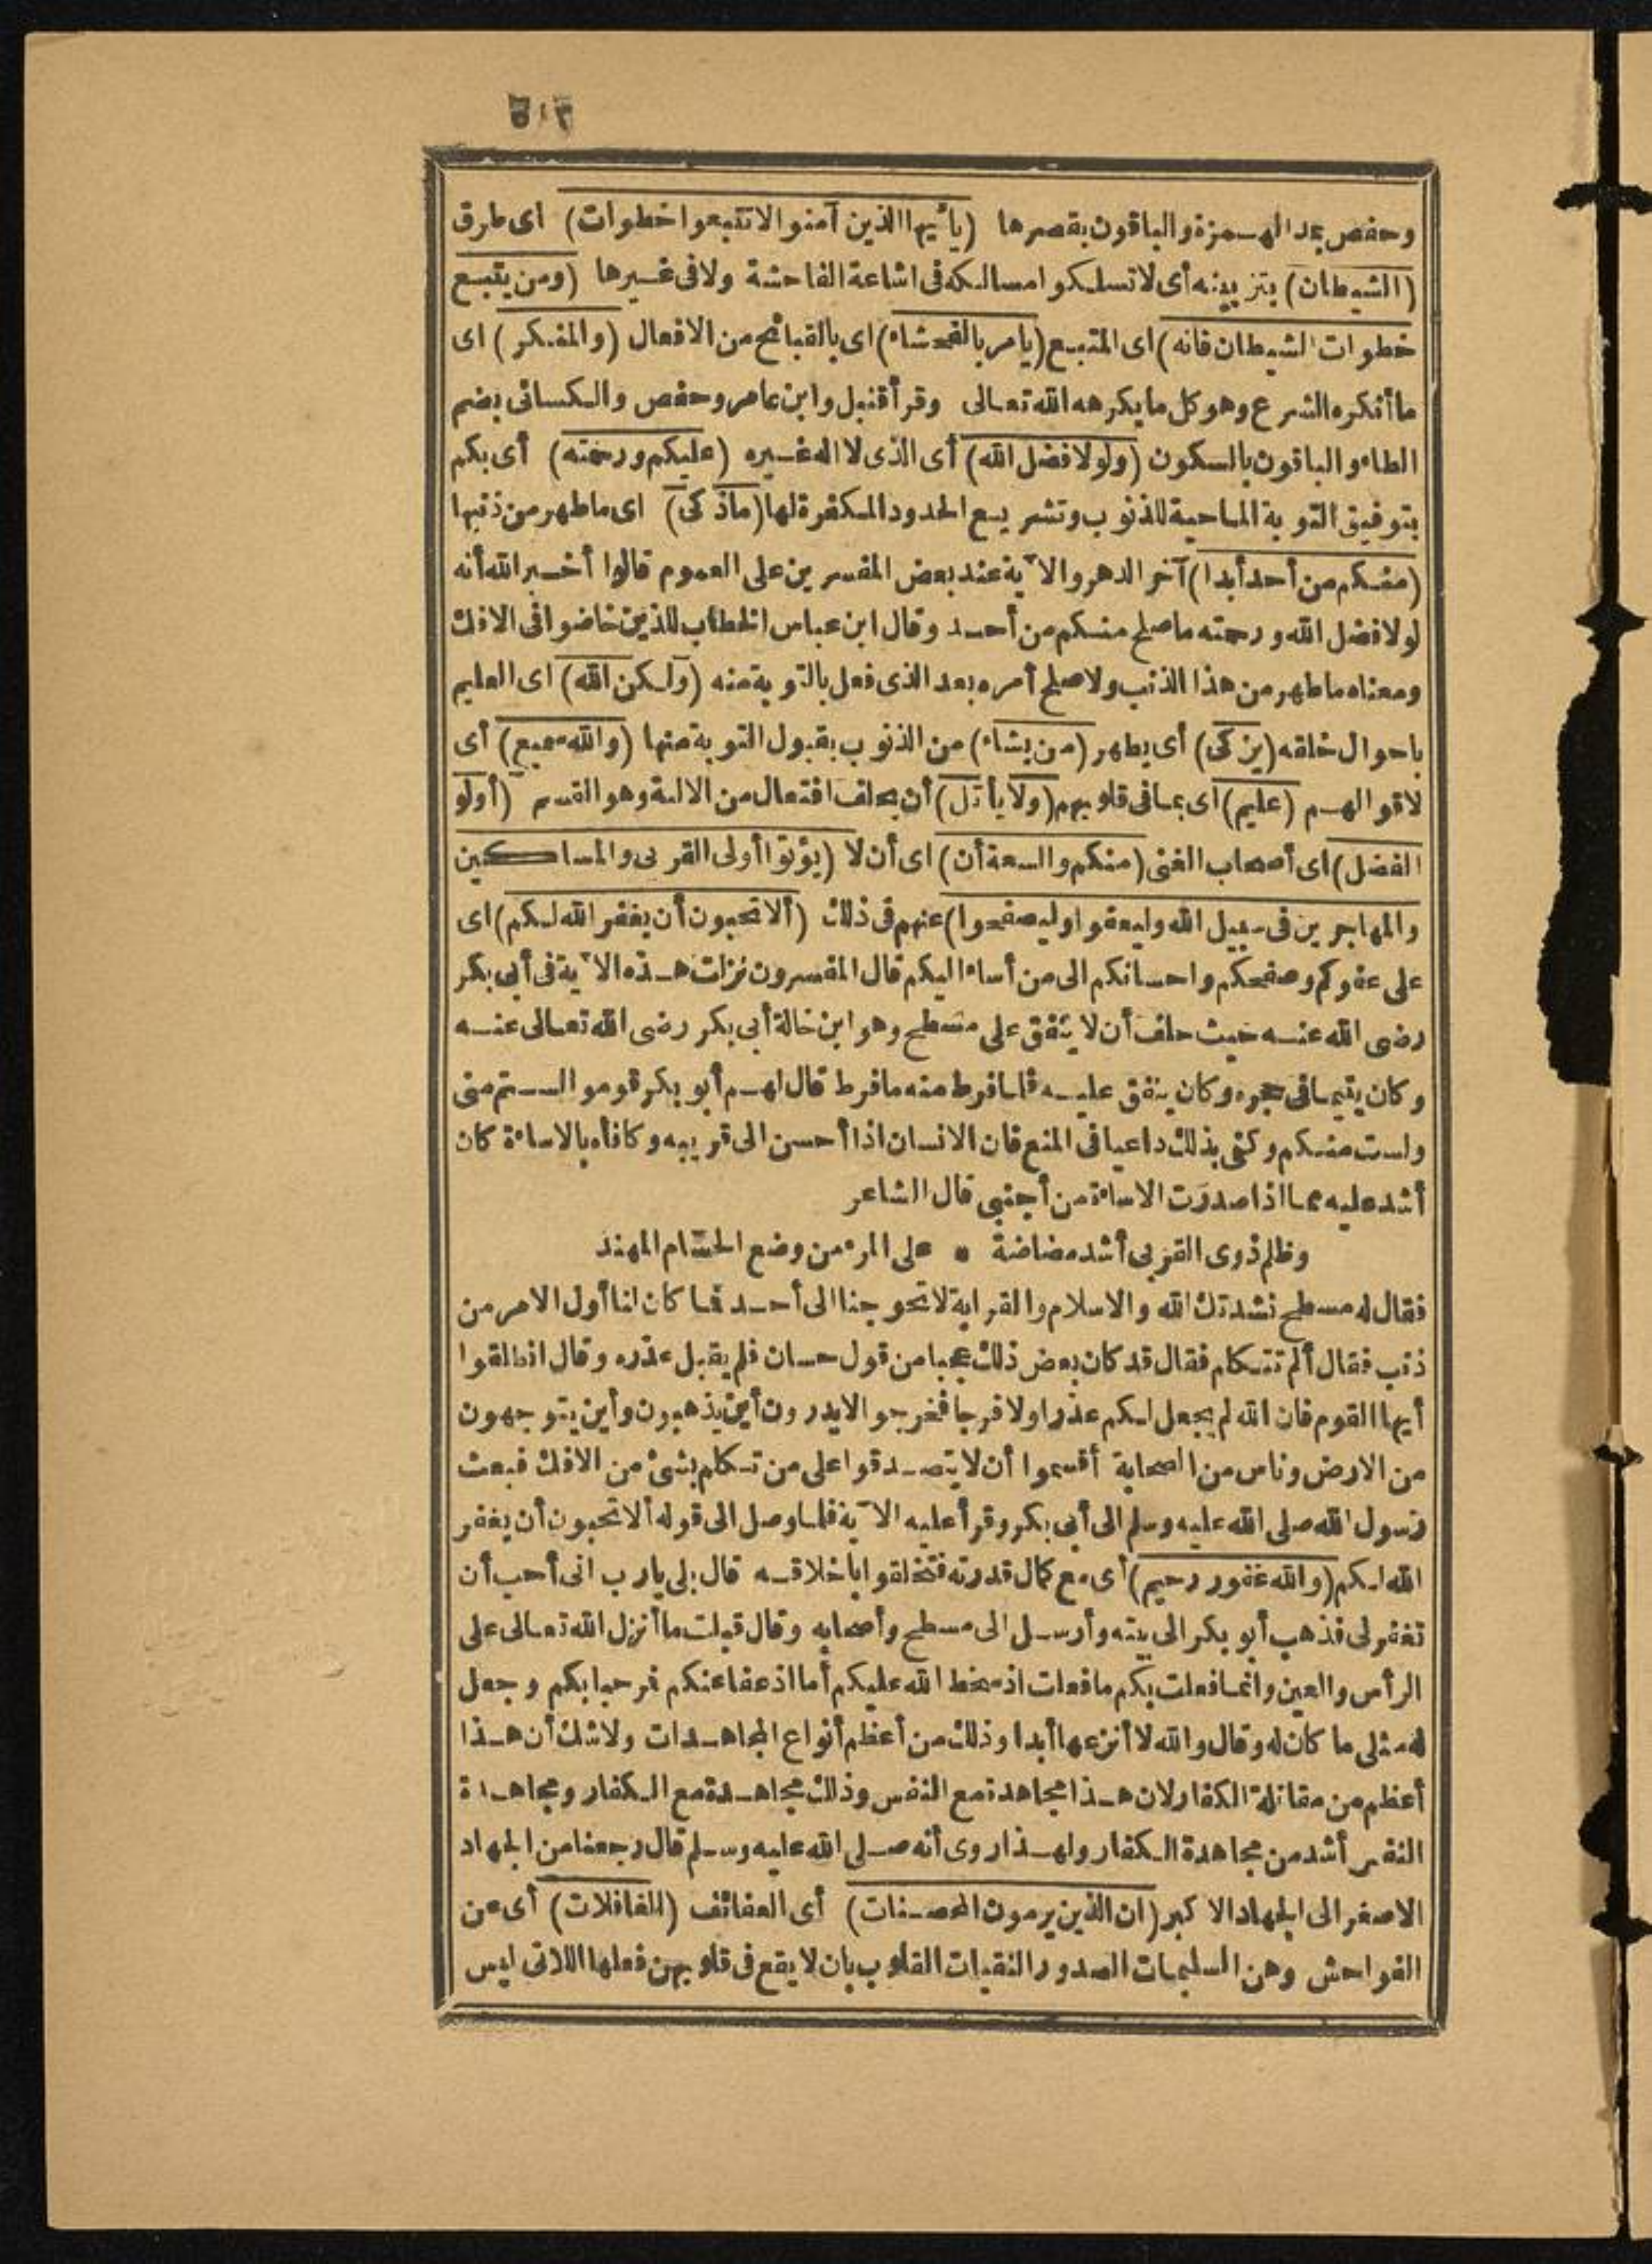 ٥١٣
وحفص بمد الهمزة والباقون بقصرها (يا أيها الذين آمنوا لا تتبعوا خطوات) اى طرق
(الشيطان) بتزيينه أى لا تسلكوا مسالكه فى اشاعة الفاحشة ولا فى غيرها (ومن يتبع
خطوات الشيطان فانه) اى المتبع (يامر بالفحشاء) اى بالقبائح من الافعال (والمنكر) اى
ما أنكره الشرع وهو كل ما يكرهه الله تعالى وقرأ قنبل وابن عامر وحفص والكسائى بضم
الطاء والباقون بالسكون (ولولا فضل الله) أى الذى لا اله غيره (عليكم ورحمته) أى بكم
بتوفيق التوبة الماحية للذنوب وتشريع الحدود المكفرة لها (ما زكى) اى ما طهر من ذنبها
(منكم من أحد أبدا) آخر الدهر والآية عند بعض المفسرين على العموم قالوا أخبر الله أنه
لولا فضل الله ورحمته ما صلح منكم من أحد وقال ابن عباس الخطاب للذين خاضوا فى الافك
ومعناه ما طهر من هذا الذنب ولا صلح أمره بعد الذى فعل بالتوبة منه (ولكن الله) اى العليم
باحوال خلقه (يزكى) أى يطهر (من يشاء) من الذنوب بقبول التوبة منها (والله سميع) أى
لاقوالهم (عليم) اى بما فى قلوبهم (ولا يأتل) أن يحلف افتعال من الالية وهو القسم (أولو
الفضل) اى أصحاب الغنى (منكم والسعة أن) اى أن لا (يؤتوا أولى القربى والمساكين
والمهاجرين فى سبيل الله وليعفوا وليصفحوا) عنهم فى ذلك (ألا تحبون أن يغفر الله لكم) اى
على عفوكم وصفحكم واحسانكم الى من أساء اليكم قال المفسرون نزلت هذه الآية فى أبى بكر
رضى الله عنه حيث حلف أن لا ينفق على مسطح وهو ابن خالة أبى بكر رضى الله تعالى عنه
وكان يتيما فى حجره وكان ينفق عليه فلما فرط منه ما فرط قال لهم أبو بكر قوموا لستم منى
ولست منكم وكفى بذلك داعيا فى المنع فان الانسان اذا أحسن الى قريبه وكافأه بالاساءة كان
أشد عليه مما اذا صدرت الاساءة من أجنبى قال الشاعر
وظلم ذوى القربى أشد مضاضة * على المرء من وضع الحسام المهند
فقال له مسطح نشدتك الله والاسلام والقرابة لا تحوجنا الى أحد فما كان لنا أول الامر من
ذنب فقال ألم تتكلم فقال قد كان بعض ذلك عجبا من قول حسان فلم يقبل عذره وقال انطلقوا
أيها القوم فان الله لم يجعل لكم عذرا ولا فرجا فخرجوا لا يدرون أين يذهبون وأين يتوجهون
من الارض وناس من الصحابة أقسموا أن لا يتصدقوا على من تكلم بشئ من الافك فبعث
رسول الله صلى الله عليه وسلم الى أبى بكر وقرأ عليه الآية فلما وصل الى قوله ألا تحبون أن يغفر
الله لكم (والله غفور رحيم) أى مع كمال قدرته فتخلقوا باخلاقه قال بلى يا رب انى أحب أن
تغفر لى فذهب أبو بكر الى بيته وأرسل الى مسطح وأصحابه وقال قبلت ما أنزل الله تعالى على
الرأس والعين وانما فعلت بكم ما فعلت اذ سخط الله عليكم أما اذ عفا عنكم فمرحبا بكم وجعل
له مثلى ما كان له وقال والله لا أنزعها أبدا وذلك من أعظم أنواع المجاهدات ولا شك أن هذا
أعظم من مقاتلة الكفار لان هذا مجاهدة مع النفس وذلك مجاهدة مع الكفار ومجاهدة
النفس أشد من مجاهدة الكفار ولهذا روى أنه صلى الله عليه وسلم قال رجعنا من الجهاد
الاصغر الى الجهاد الاكبر (ان الذين يرمون المحصنات) أى العفائف (الغافلات) أى عن
الفواحش وهن السليمات الصدور النقيات القلوب بان لا يقع فى قلوبهن فعلها اللاتى ليس